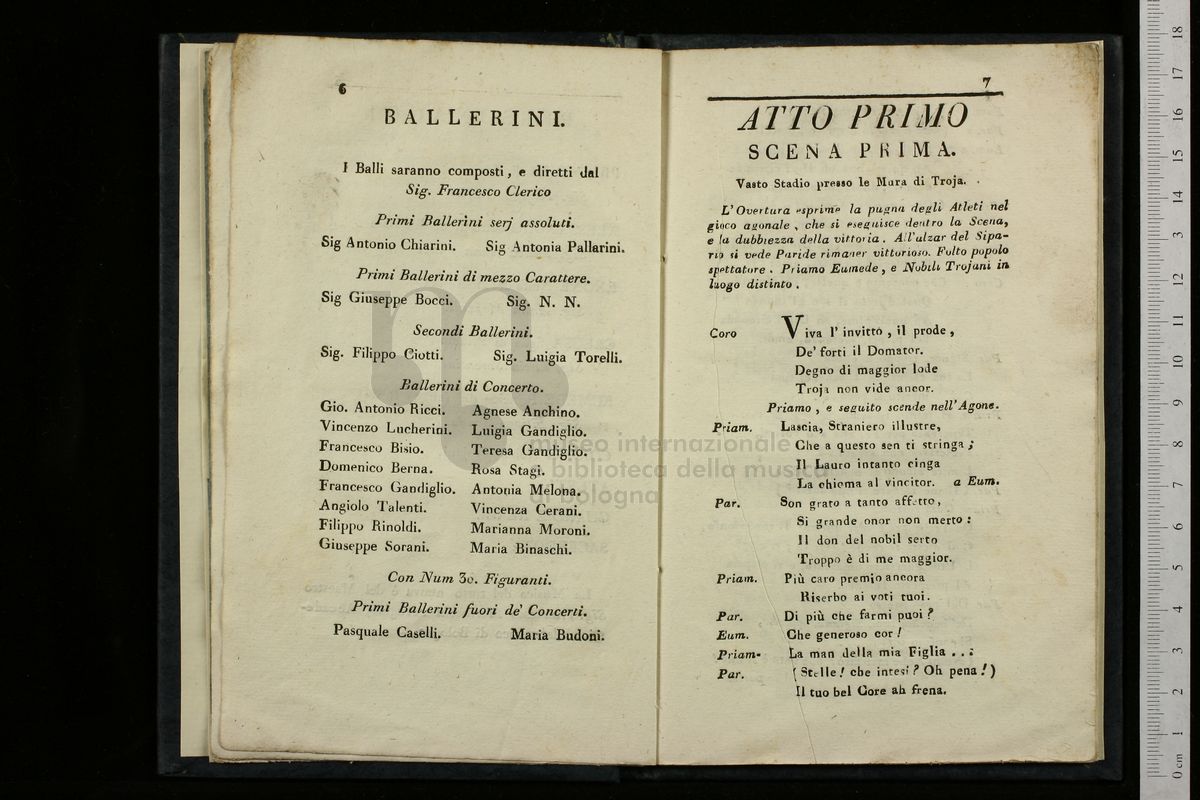 6
BALLERINI.
I Balli saranno composti, e diretti dal
Sig. Francesco Clerico
Primi Ballerini serj assoluti.
Sig Antonio Chiarini. Sig Antonia Pallarini.
Primi Ballerini di mezzo Carattere.
Sig Giuseppe Bocci. Sig. N. N.
Secondi Ballerini.
Sig. Filippo Ciotti. Sig. Luigia Torelli.
Ballerini di Concerto.
Gio. Antonio Ricci. Agnese Anchino.
Vincenzo Lucherini. Luigia Gandiglio.
Francesco Bisio. Teresa Gandiglio.
Domenico Berna. Rosa Stagi.
Francesco Gandiglio. Antonia Melona.
Angiolo Talenti. Vincenza Cerani.
Filippo Rinoldi. Marianna Moroni.
Giuseppe Sorani. Maria Binaschi.
Con Num 30. Figuranti.
Primi Ballerini fuori de' Concerti.
Pasquale Caselli. Maria Budoni.
museo internazionale
e biblioteca della musica
di bologna
7
ATTO PRIMO
SCENA PRIMA.
Vasto Stadio presso le Mura di Troja.
L'Overtura esprime la pugna degli Atleti nel
gioco agonale, che si eseguisce dentro la Scena,
e la dubbiezza della vittoria. All'ulzar del Sipa-
rio si vede Paride rimaner vittorioso. Folto popolo
spettatore. Priamo Eumede, e Nobili Trojani in
luogo distinto.
Coro Viva l'invitto, il prode,
De' forti il Domator.
Degno di maggior lode
Troja non vide ancor.
Priamo, e seguito scende nell'Agone.
Priam. Lascia, Straniero illustre,
Che a questo sen ti stringa;
Il Lauro intanto cinga
La chioma al vincitor. a Eum.
Par. Son grato a tanto affetto,
Si grande onor non merto:
Il don del nobil serto
Troppo è di me maggior.
Priam. Più caro premio ancora
Riserbo ai voti tuoi.
Par. Di più che farmi puoi?
Eum. Che generoso cor!
Priam- La man della mia Figlia ..:
Par. (Stelle! che intesi? Oh pena!)
Il tuo bel Core ah frena.
0 cm 1 2 3 4 5 6 7 8 9 10 11 12 13 14 15 16 17 18